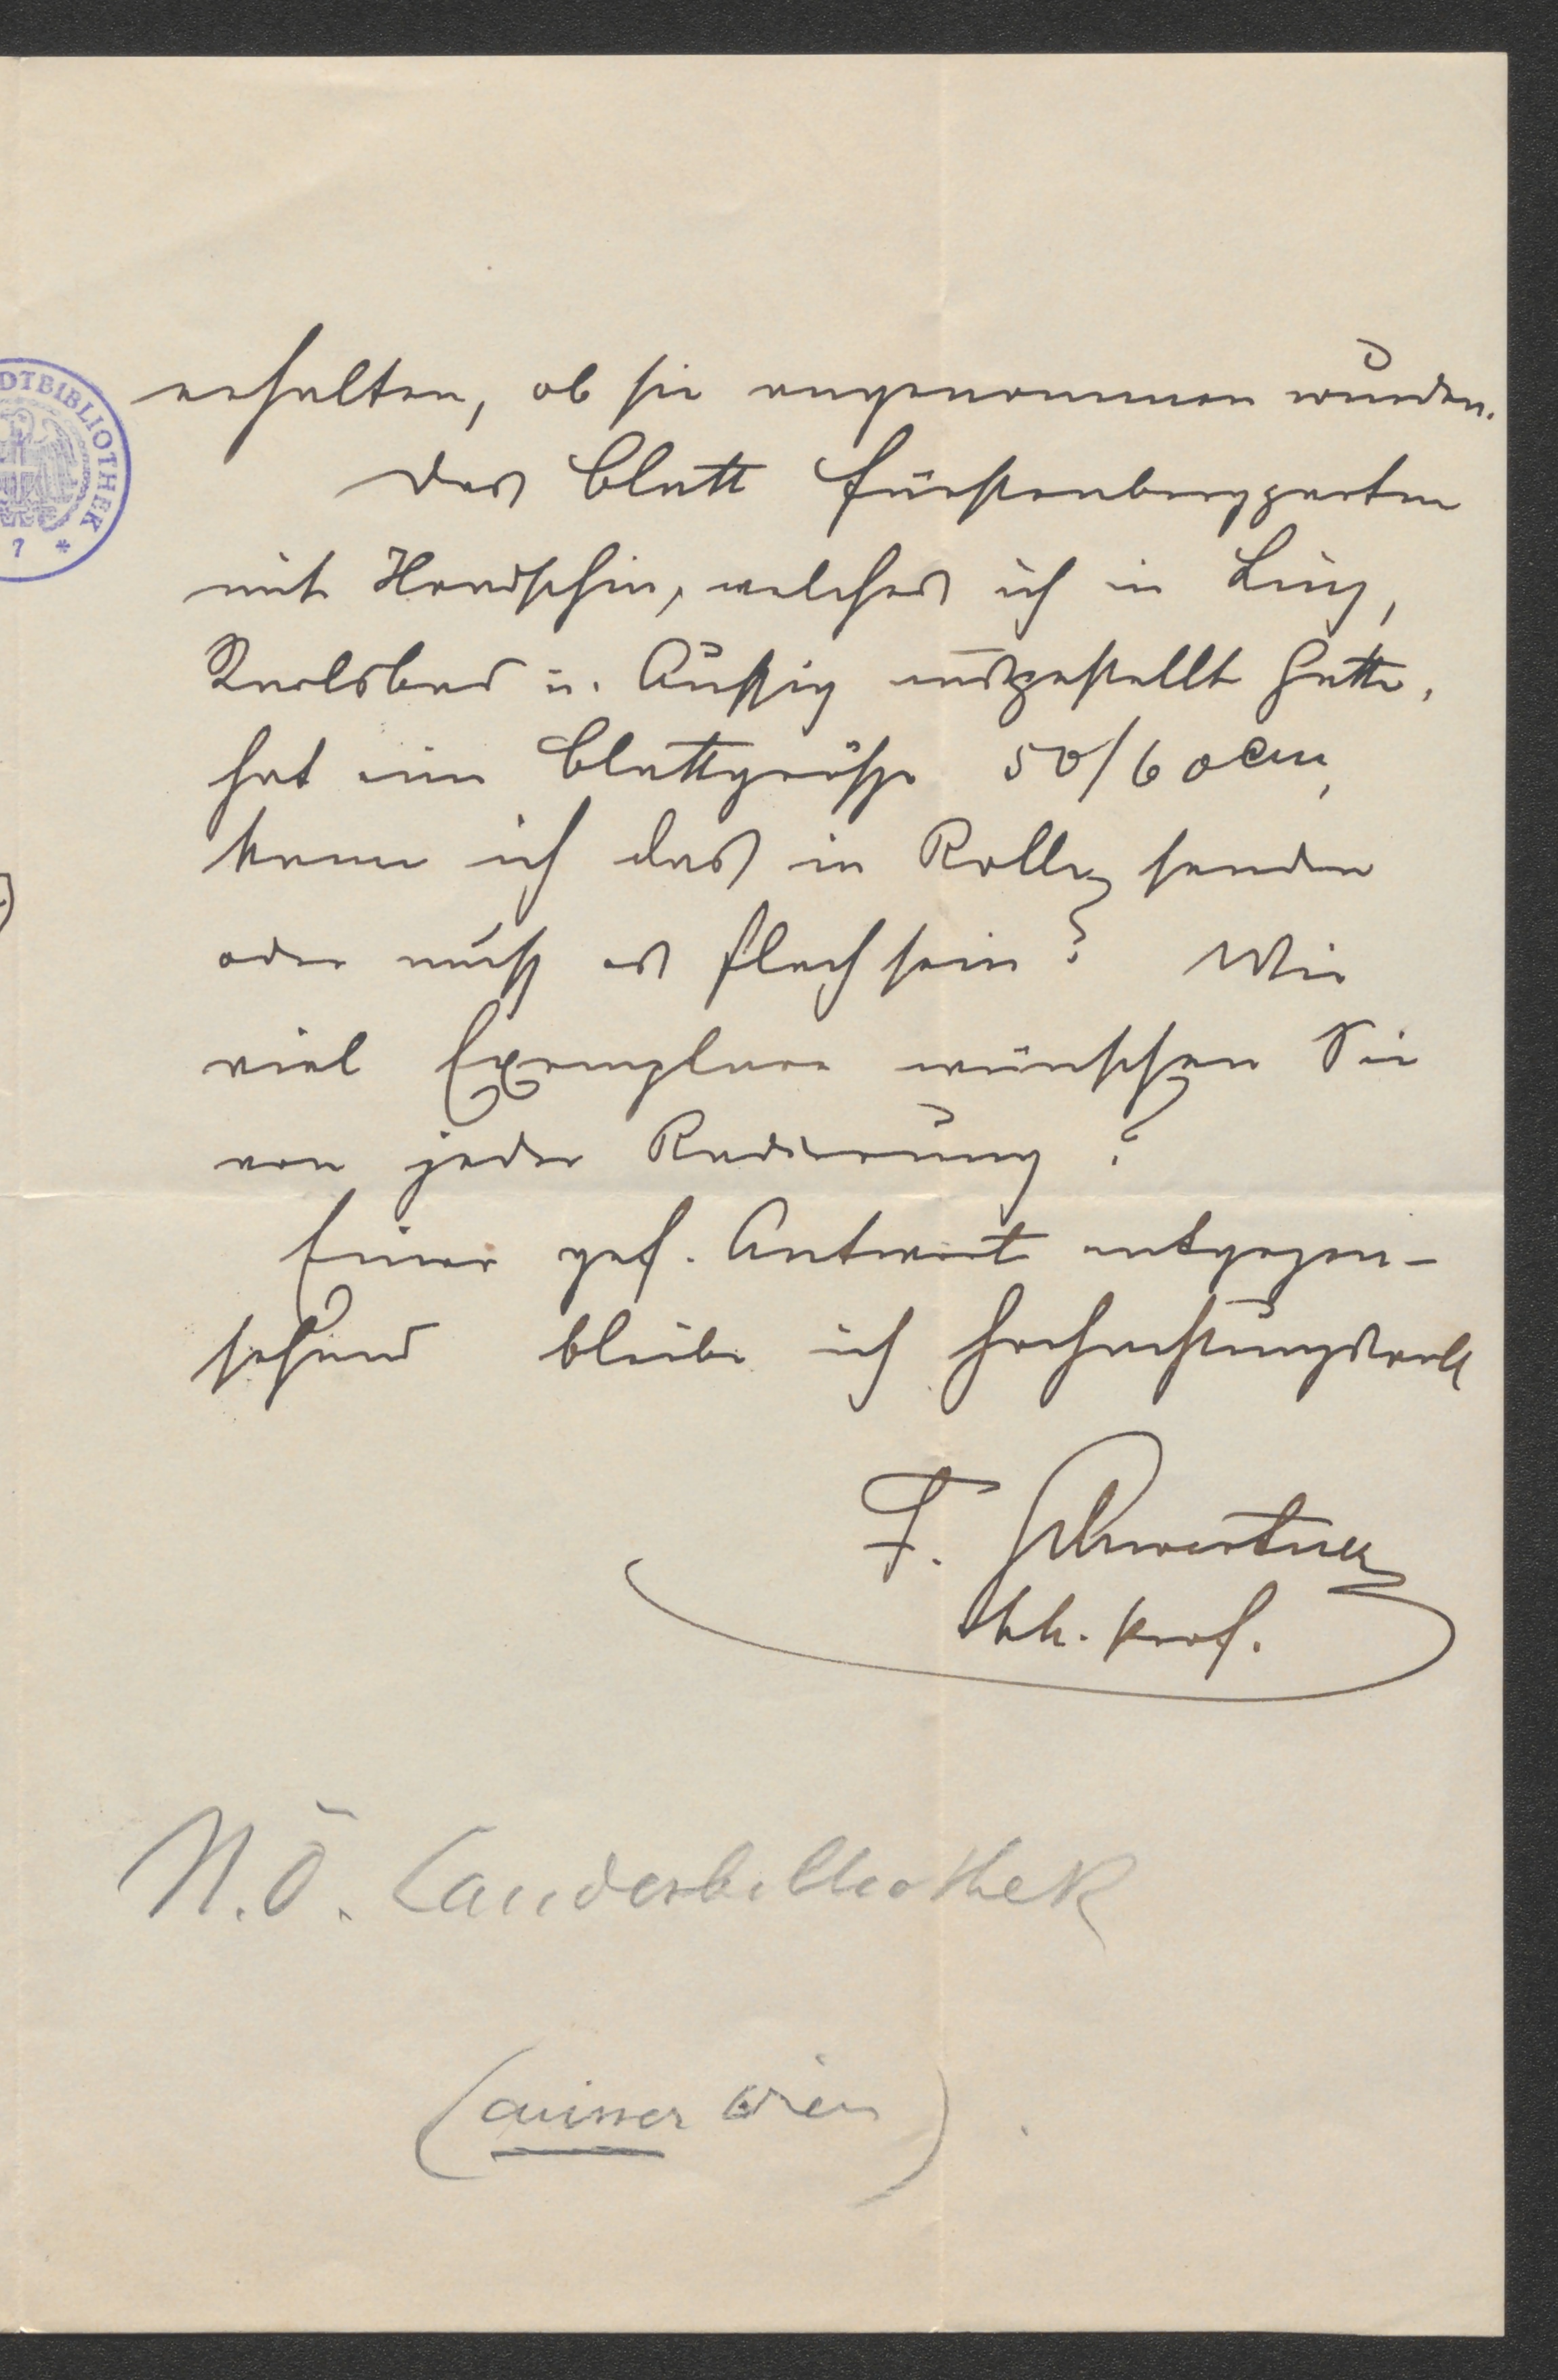 erhalten, ob sie angenommen wurden.
Das Blatt Fürstenberggarten
mit Hradschin, welches ich in Linz,
Karlsbad u. Aussig ausgestellt hatte,
hat eine Blattgröße 50/60 cm,
kann ich das in Rolle senden
oder muß es flach sein? Wie
viel Exemplare wünschen Sie
von jeder Radierung?
Einer gef. Antwort entgegen-
sehend bleibe ich hochachtungsvoll
F. Schwertner
k.k. Prof.
N.Ö. Landesbibliothek
(ausser Wien)
DTBIBLIOTHEK
7 *